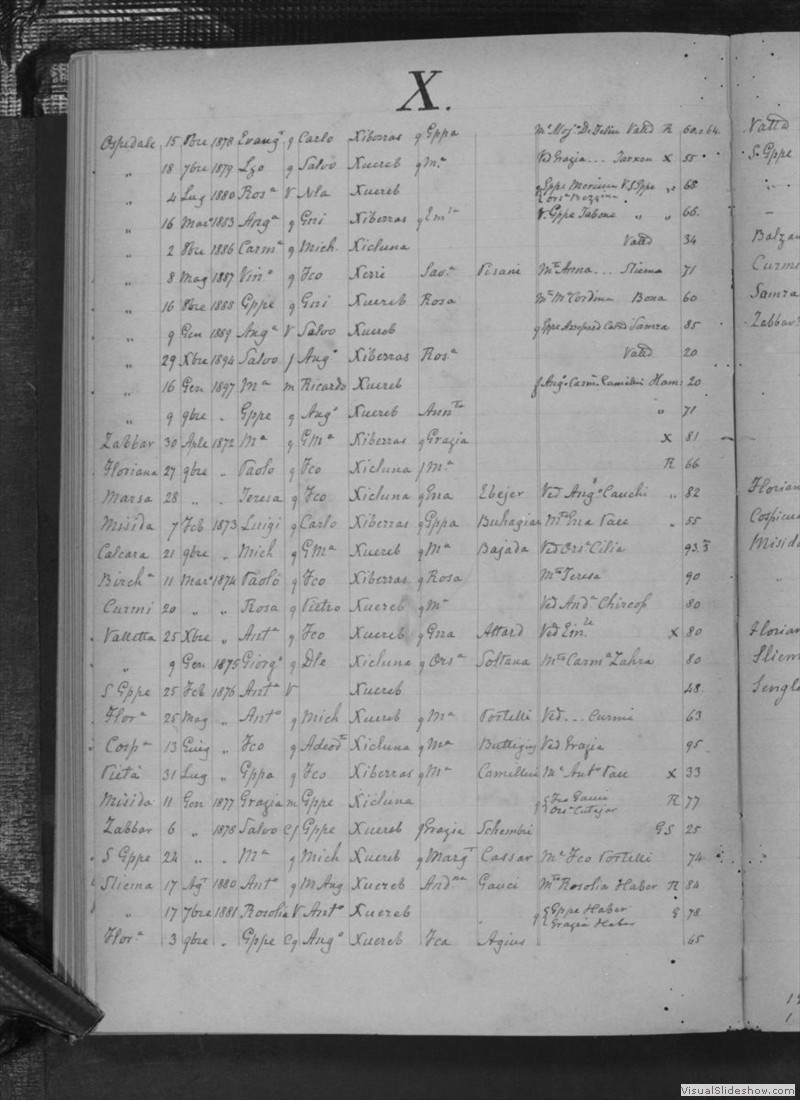 X.
Ospedale 15 8bre 1878 Evang.a q Carlo Xiberras q Gppa Valtta R 60 o 64.
„ 18 7bre 1879 Lzo q Salvo Xuereb q M.a Ved Grazia ... Tarxen X 55
„ 4 Lug 1880 Ros.a V Nla Xuereb 68
„ 16 Mar.o 1883 Ang.a q Gni Xiberras q Em.la V. Gppe Tabone „ „ 66.
„ 2 8bre 1886 Carm.a q Mich. Xicluna Valtta 34
„ 8 Mag 1887 Vin.o q Fco Xerri Sav.a Pisani M.to Anna ... Sliema 71
„ 16 8bre 1888 Gppe q Gni Xuereb Rosa 60
„ 9 Gen 1889 Ang.a V Salvo Xuereb 85
„ 29 Xbre 1894 Salvo f Ang.o Xiberras Ros.a Valtta 20
„ 16 Gen 1897 M.a m Ricardo Xuereb Ham: 20
„ 9 9bre „ Gppe q Ang.o Xuereb Ann.ta „ 71
Zabbar 30 Aple 1872 M.a q GM.a Xiberras q Grazia X 81
Floriana 27 9bre „ Paolo q Fco Xicluna f M.a R 66
Marsa 28 „ „ Teresa q Fco Xicluna q Gna Ebejer Ved Ang.o Cauchi „ 82
Misida 7 Feb 1873 Luigi q Carlo Xiberras q Gppa Buhagiar M.to Gna Pace „ 55
Calcara 21 9bre „ Mich q GM.a Xuereb q M.a Bajada Ved Ors.a Cilia 93.
Birch.a 11 Mar.o 1874 Paolo q Fco Xiberras q Rosa M.to Teresa 90
Curmi 20 „ „ Rosa q Pietro Xuereb q M.a Ved And.a Chircop 80
Valletta 25 Xbre „ Ant.a q Fco Xuereb q Gna Attard Ved Em.le X 80
„ 9 Gen 1875 Giorg.o q Dle Xicluna q Ors.a Soltana M.to Carm.a Zahra 80
S Gppe 25 Feb 1876 Ant.a V Xuereb 48.
Flor.a 25 Mag „ Ant.o q Mich Xuereb q M.a Portelli Ved ... Curmi 63
Cosp.a 13 Giug „ Fco q Adeod.to Xicluna q M.a Buttigieg Ved Grazia 95.
Pietà 31 Lug „ Gppa q Fco Xiberras q M.a Camilleri M.a Ant.o Pace X 33
Misida 11 Gen 1877 Grazia m Gppe Xicluna q Fco Gauci Ors.a Cutajar R 77
Zabbar 6 „ 1878 Salvo C f Gppe Xuereb q Grazia Schembri G S 25
S Gppe 24 „ „ M.a q Mich Xuereb q Marg.ta Cassar M.a Fco Portelli 74
Sliema 17 Ag.to 1880 Ant.o q M Ang Xuereb And.na Gauci M.to Rosolia Haber R 84
„ 17 7bre 1881 Rosolia V Ant.o Xuereb „ q Gppe Haber Grazia Haber G 78
Flor.a 3 9bre „ Gppe C q Ang.o Xuereb Fca Agius 65
Valtta
S. Gppe
Balzan
Curmi
Samra
Zabbar
Florian
Cospicua
Misida
Florian
Sliem
Sengle
VisualSlideshow.com